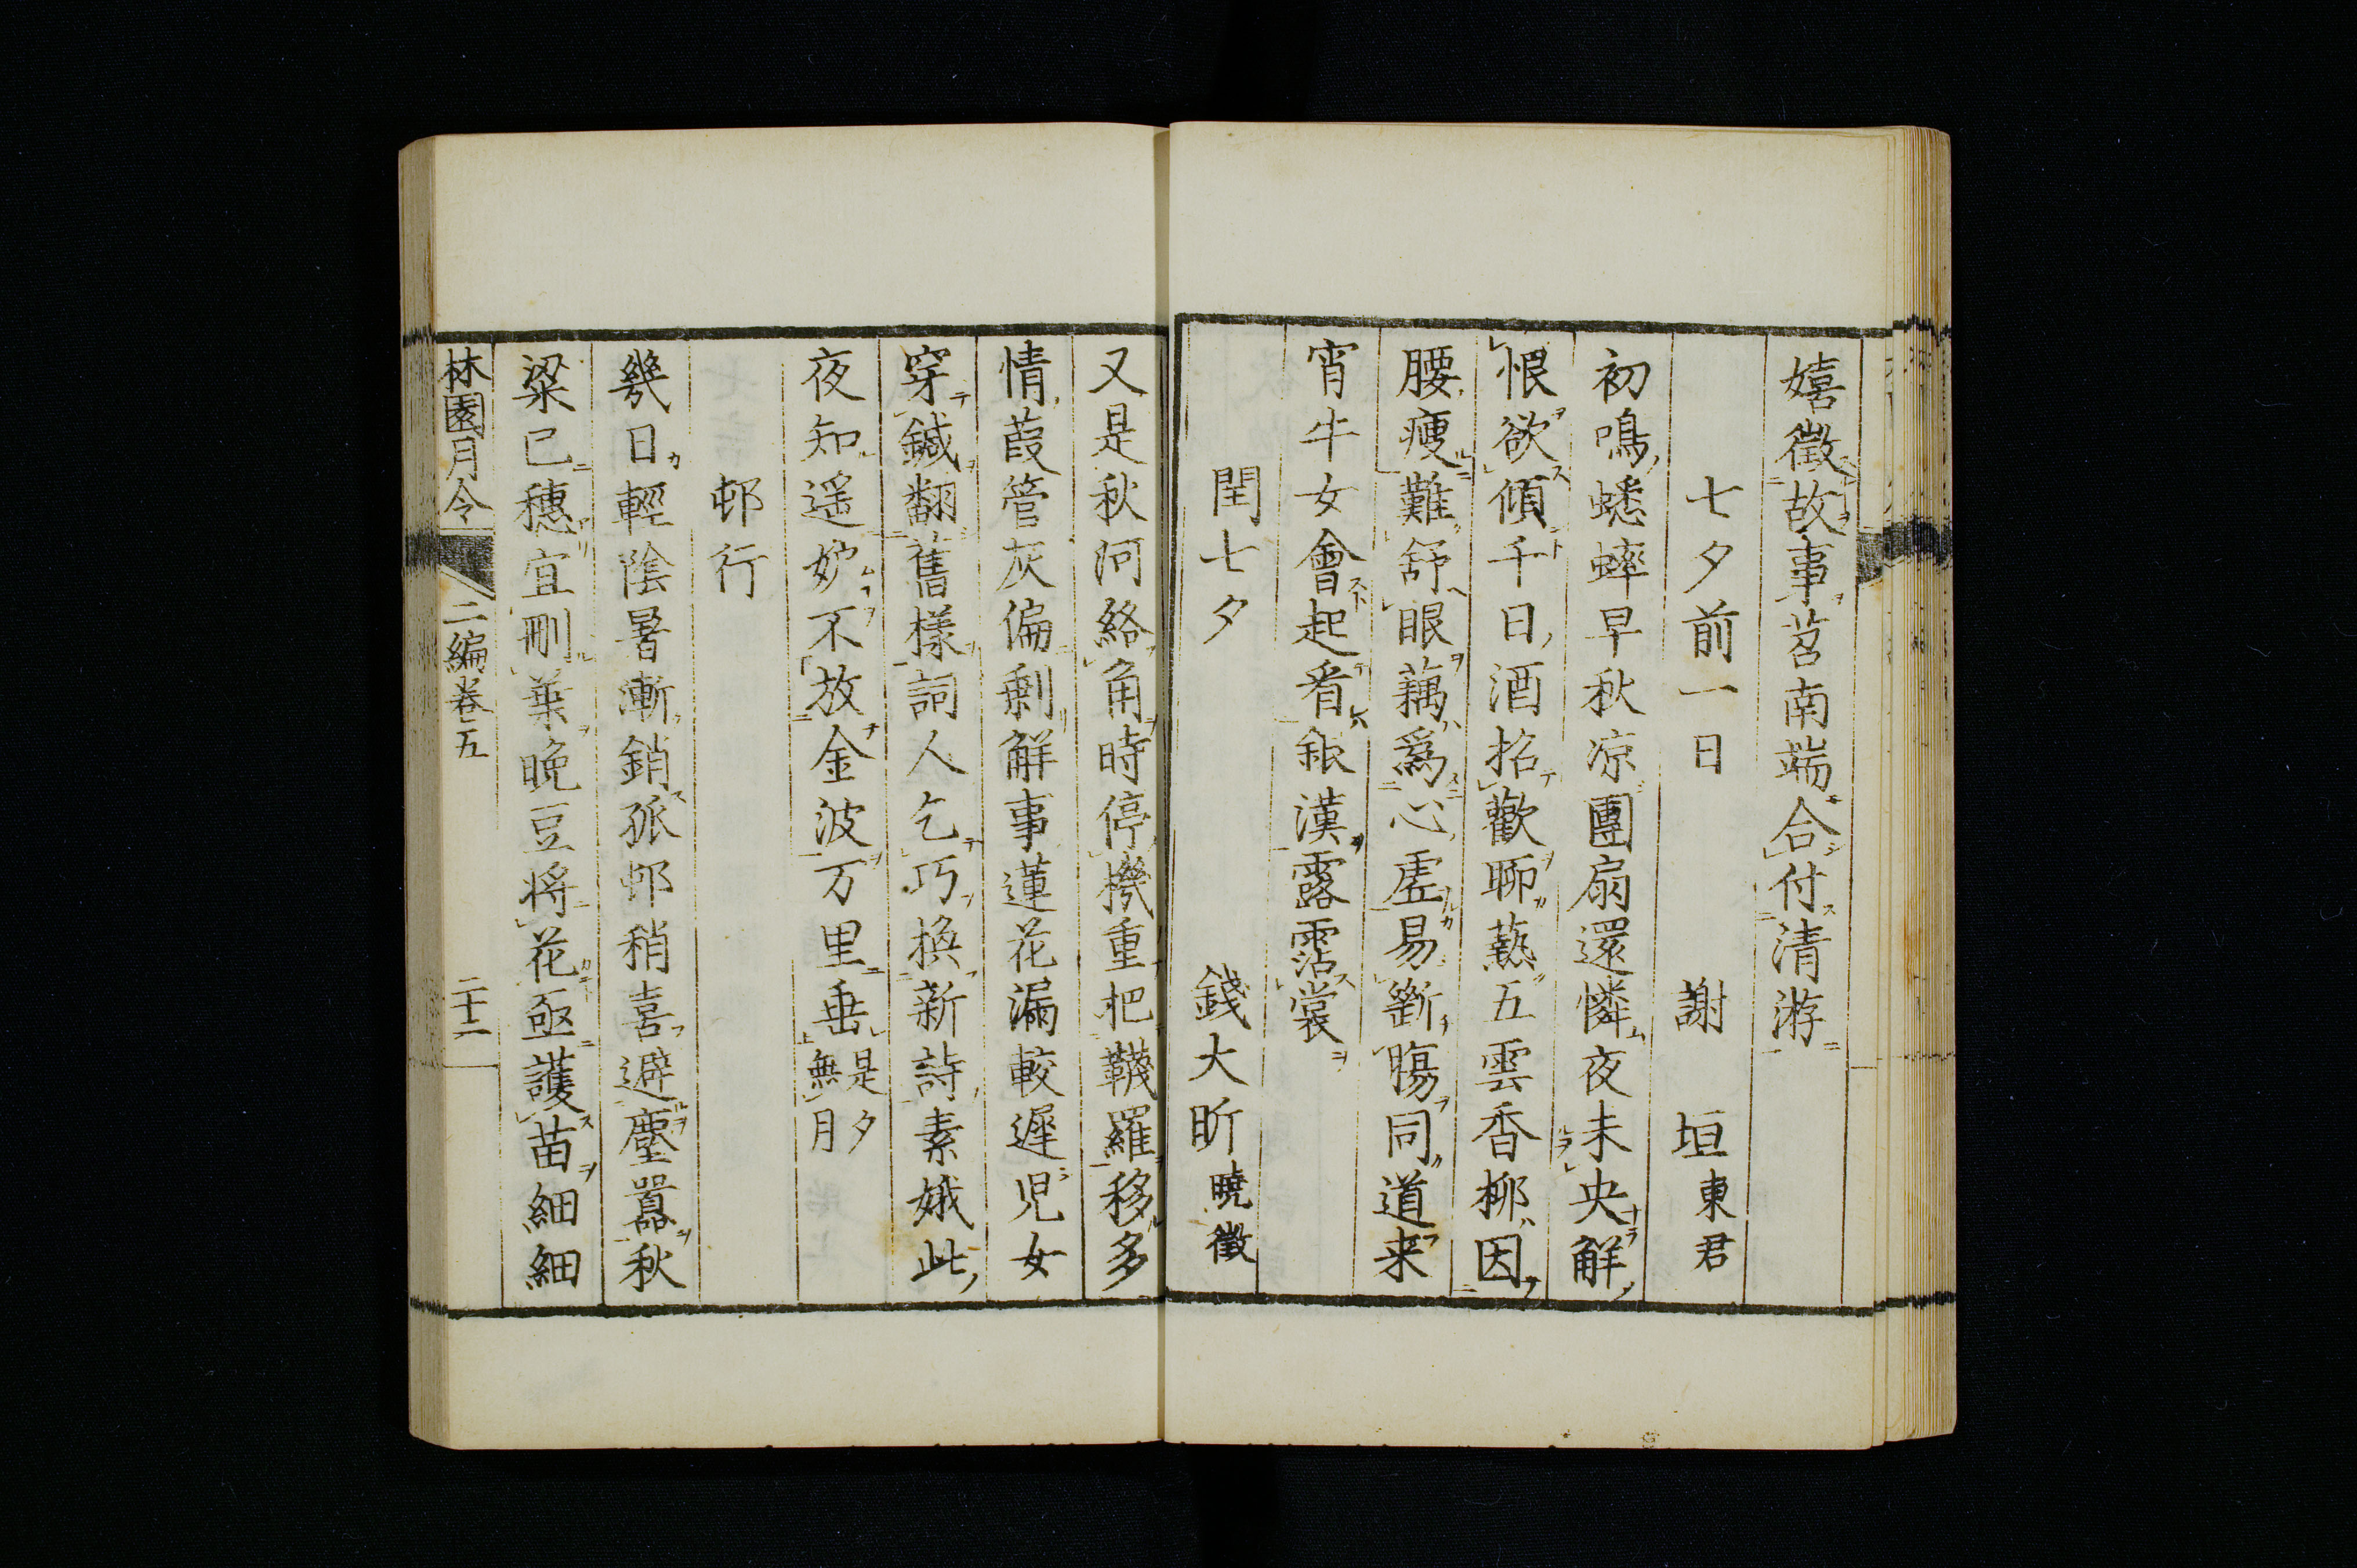 嬉徴故事苕南端合付清游
七夕前一日　謝垣東君
初鳴蟋蟀早秋凉團扇還憐夜未央解
恨欲傾千日酒招歡聊爇五雲香柳因
腰瘦難舒眼藕爲心虚易斷腸同道来
宵牛女會起看銀漢露霑裳
閏七夕　錢大昕曉徴
又是秋河絡角時停機重把襪羅移多
情葭管灰偏剰解事蓮花漏較遲児女
穿鍼翻舊樣詞人乞巧換新詩素娥此
夜知遥妒不放金波万里垂是夕無月
邨行
幾日輕陰暑漸銷孤邨稍喜避塵囂秋
粱已穗宜刪葉晩豆将花亟護苗細細
林園月令　二編卷五　二十二